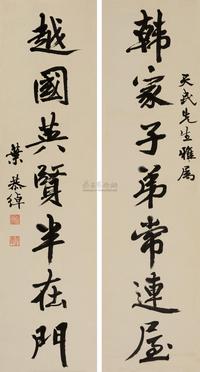 天武先生雅属
韩家子弟常連屋
越國英賢半在門
葉恭綽